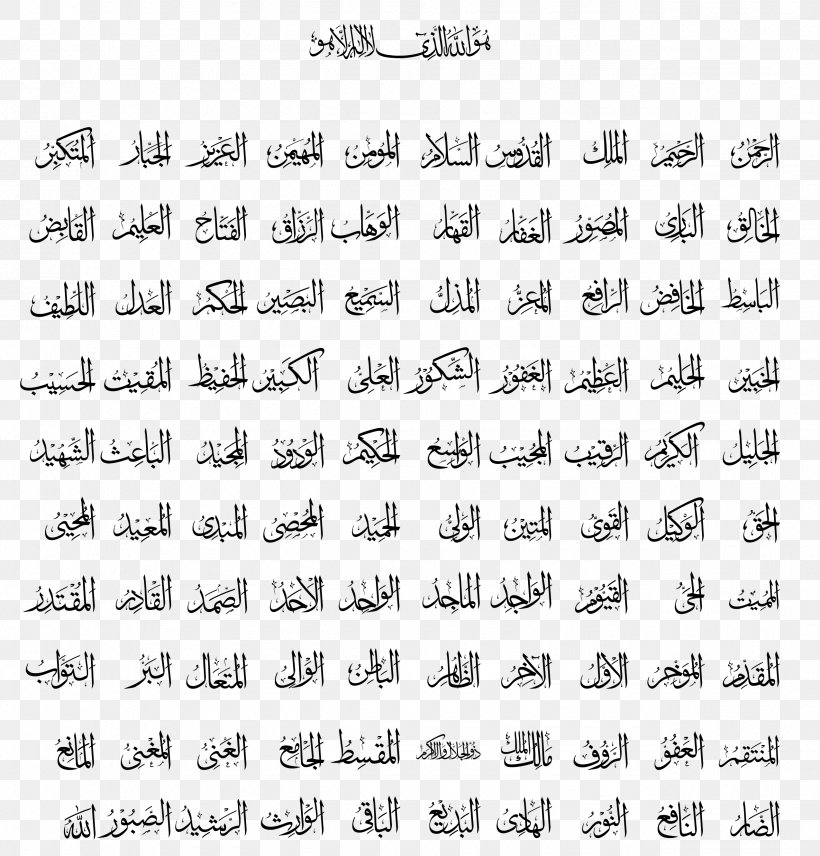 هُوَ اللهُ الَّذِى لَا إِلٰهَ إِلَّا هُوَ
الرَّحْمٰنُ الرَّحِيْمُ الْمَلِكُ الْقُدُّوسُ السَّلَامُ الْمُؤْمِنُ الْمُهَيْمِنُ الْعَزِيْزُ الْجَبَّارُ الْمُتَكَبِّرُ
الْخَالِقُ الْبَارِئُ الْمُصَوِّرُ الْغَفَّارُ الْقَهَّارُ الْوَهَّابُ الرَّزَّاقُ الْفَتَّاحُ الْعَلِيْمُ الْقَابِضُ
الْبَاسِطُ الْخَافِضُ الرَّافِعُ الْمُعِزُّ الْمُذِلُّ السَّمِيْعُ الْبَصِيْرُ الْحَكَمُ الْعَدْلُ اللَّطِيْفُ
الْخَبِيْرُ الْحَلِيْمُ الْعَظِيْمُ الْغَفُوْرُ الشَّكُوْرُ الْعَلِىُّ الْكَبِيْرُ الْحَفِيْظُ الْمُقِيْتُ الْحَسِيْبُ
الْجَلِيْلُ الْكَرِيْمُ الرَّقِيْبُ الْمُجِيْبُ الْوَاسِعُ الْحَكِيْمُ الْوَدُوْدُ الْمَجِيْدُ الْبَاعِثُ الشَّهِيْدُ
الْحَقُّ الْوَكِيْلُ الْقَوِىُّ الْمَتِيْنُ الْوَلِىُّ الْحَمِيْدُ الْمُحْصِى الْمُبْدِئُ الْمُعِيْدُ الْمُحْيِى
الْمُمِيْتُ الْحَىُّ الْقَيُّوْمُ الْوَاجِدُ الْمَاجِدُ الْوَاحِدُ الْأَحَدُ الصَّمَدُ الْقَادِرُ الْمُقْتَدِرُ
الْمُقَدِّمُ الْمُؤَخِّرُ الْأَوَّلُ الْآخِرُ الظَّاهِرُ الْبَاطِنُ الْوَالِى الْمُتَعَالُ الْبَرُّ التَّوَّابُ
الْمُنْتَقِمُ الْعَفُوُّ الرَّؤُوْفُ مَالِكُ الْمُلْكِ ذُو الْجَلَالِ وَالْإِكْرَامِ الْمُقْسِطُ الْجَامِعُ الْغَنِىُّ الْمُغْنِى الْمَانِعُ
الضَّارُّ النَّافِعُ النُّوْرُ الْهَادِى الْبَدِيْعُ الْبَاقِى الْوَارِثُ الرَّشِيْدُ الصَّبُوْرُ اللهُ